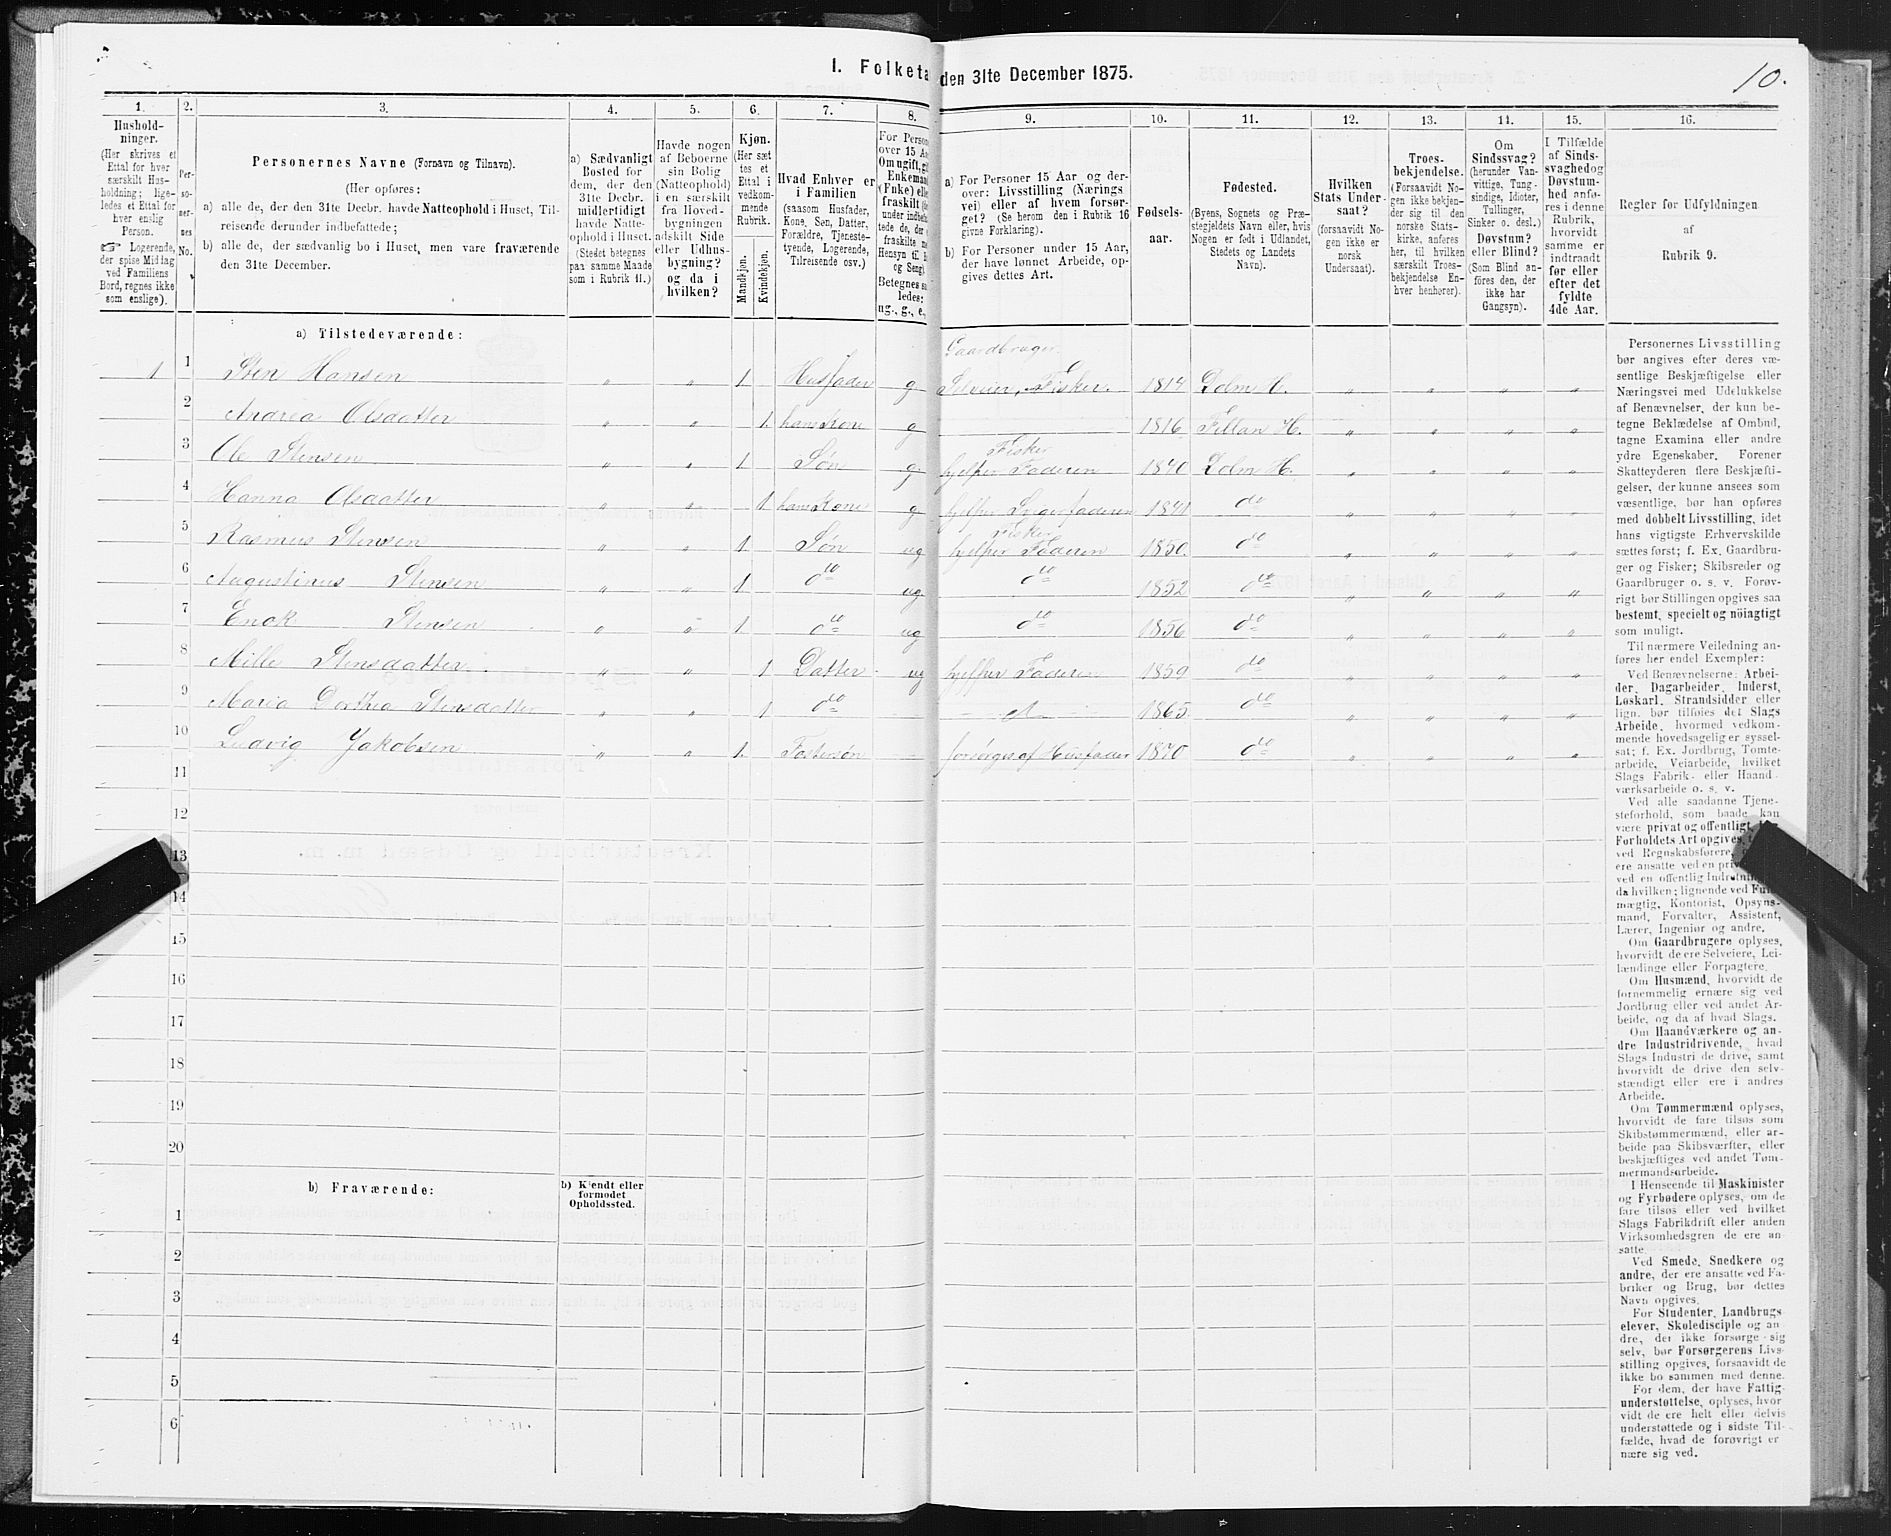 I. Folketa den 31te December 1875.
10.
1. 2. 3. 4. 5. 6. 7. 8. 9. 10. 11. 12. 13. 14. 15. 16.
Hushold-
ninger.
(Her skrives et
Ettal for hver
særskilt Hus-
holdning; lige-
ledes et Ettal for
hver enslig
Person.
☞ Logerende,
der spise Middag
ved Familiens
Bord, regnes ikke
som enslige).
Per-
so-
ner-
nes
No.
Personernes Navne (Fornavn og Tilnavn).
(Her opføres:
a) alle de, der den 31te Decbr. havde Natteophold i Huset, Til-
reisende derunder indbefattede;
b) alle de, der sædvanlig bo i Huset, men vare fraværende
den 31te December.
a) Sædvanligt
Bosted for
dem, der den
31te Decbr.
midlertidigt
havde Natte-
ophold i Huset.
(Stedet betegnes
paa samme Maade
som i Rubrik 11.)
Havde nogen
af Beboerne
sin Bolig
(Natteophold)
i en særskilt
fra Hoved-
bygningen
adskilt Side
eller Udhus-
bygning?
og da i
hvilken?
Kjøn.
(Her sæt
tes et
Ettal i
vedkom-
mende
Rubrik.
Mandkjøn.
Kvindekjøn.
Hvad Enhver er
i Familien
(saasom Husfader,
Kone, Søn, Datter,
Forældre, Tjeneste-
tyende, Logerende,
Tilreisende osv.)
For Perso
over 15 A
Om ugift, gi
Enkeman
(Enke) ell
fraskilt
under indbef
tede de, der
fraskilte
Hensyn til
og Seng)
Betegnes sa
ledes:
ug., g., e.,
a) For Personer 15 Aar og der-
over: Livsstilling (Nærings
vei) eller af hvem forsør-
get? (Se herom den i Rubrik 16
givne Forklaring).
b) For Personer under 15 Aar,
der have lønnet Arbeide, op-
gives dettes Art.
Fødsels-
aar.
Fødested.
(Byens, Sognets og Præ-
stegjeldets Navn eller, hvis
Nogen er født i Udlandet,
Stedets og Landets
Navn).
Hvilken
Stats Under-
saat?
(forsaavidt No-
gen ikke er
norsk
Undersaat).
Troes-
bekjendelse.
(Forsaavidt No-
gen ikke bekjen-
der sig til den
norske Stats-
kirke, anføres
her, til hvilken
særskilt Troes-
bekjendelse En-
hver henhører).
Om
Sindssvag?
(herunder Van-
vittige, Tung-
sindige, Idioter,
Tullinger,
Sinker o. desl.)
Døvstum?
eller Blind?
(Som Blind an-
føres den, der
ikke har
Gangsyn).
I Tilfælde
af Sinds-
svaghed og
Døvstum-
hed anfø-
res i denne
Rubrik,
hvorvidt
samme er
indtraadt
før eller
efter det
fyldte
4de Aar.
Regler for Udfyldningen
af
Rubrik 9.
a) Tilstedeværende:
Gaardbruger
1 1 Sten Hansen „ „ 1 Husfader g Selveier, Fisker. 1814 Dolm H. „ „ „ „
2 Andrea Olsdatter „ „ 1. hans Kone g 1816 Fillan H. „ „ „ „
Fisker
3 Ole Stensen „ „ 1 Søn g. hjelper Faderen 1840 Dolm H. „ „ „ „
4 Hanna Olsdatter „ „ 1 hans Kone g hjelper Svigerfaderen 1841 do „ „ „ „
Fisker
5 Rasmus Stensen „ „ 1 Søn ug hjelper Faderen 1850. do „ „ „ „
6 Augustinus Stensen „ „ 1 do ug do 1852 do „ „ „ „
7 Enok Stensen „ „ 1 do ug do 1856 do „ „ „ „
8 Mille Stensdatter „ „ 1 Datter ug hjelper Faderen 1859 do „ „ „ „
9 Maria Dorthea Stensdatter „ „ 1 do 1865 do „ „ „ „
10 Ludvig Jakobsen „ „ 1. Fostersøn forsørges af Husfader 1870 do „ „ „ „
11
12
13
14
15
16
17
18
19
20
b) Fraværende:
b) Kjendt eller
formodet
Opholdssted.
1
2
3
4
5
6
Personernes Livsstilling
bør angives efter deres væ-
sentlige Beskjæftigelse eller
Næringsvei med Udelukkelse
af Benævnelser, der kun be-
tegne Beklædelse af Ombud,
tagne Examina eller andre
ydre Egenskaber. Forener
Skatteyderen flere Beskjæfti-
gelser, der kunne ansees som
væsentlige, bør han opføres
med dobbelt Livsstilling, idet
hans vigtigste Erhvervskilde
sættes først; f. Ex. Gaardbru-
ger og Fisker; Skibsreder og
Gaardbruger o. s. v. Forøv-
rigt bør Stillingen opgives saa
bestemt, specielt og nöiagtigt
som muligt.
Til nærmere Veiledning an-
føres her endel Exempler:
Ved Benævnelserne: Arbei-
der, Dagarbeider, Inderst,
Løskarl, Strandsidder eller
lign. bør tilføies det Slags
Arbeide, hvormed vedkom-
mende hovedsagelig er syssel-
sat; f. Ex. Jordbrug, Tomte-
arbeide, Veiarbeide, hvilket
Slags Fabrik- eller Haand-
værksarbeide o. s. v.
Ved alle saadanne Tjene-
steforhold, som baade kan
være privat og offentligt,
Forholdets Art opgives,
ved Regnskabsførere,
ere ansatte ved en priv
ved en offentlig Indretning
da hvilken; lignende ved Fuld-
mægtig, Kontorist, Opsyns-
mand, Forvalter, Assistent,
Lærer, Ingeniør og andre.
Om Gaardbrugere oplyses,
hvorvidt de ere Selveiere, Lei-
lændinge eller Forpagtere.
Om Husmænd, hvorvidt de
fornemmelig ernære sig ved
Jordbrug eller ved andet Ar-
beide, og da af hvad Slags.
Om Haandværkere og an-
dre Industridrivende, hvad
Slags Industri de drive, samt
hvorvidt de drive den selv-
stændigt eller ere i andres
Arbeide.
Om Tømmermænd oplyses,
hvorvidt de fare tilsøs som
Skibstømmermænd, eller ar-
beide paa Skibsværfter, eller
beskjæftiges ved andet Tøm-
mermandsarbeide.
I Henseende til Maskinister
og Fyrbødere oplyses, om de
fare tilsøs eller ved hvilket
Slags Fabrikdrift eller anden
Virksomhedsgren de ere an-
satte.
Ved Smede, Snedkere og
andre, der ere ansatte ved Fa-
briker og Brug, bør dettes
Navn opgives.
For Studenter, Landbrugs-
elever, Skoledisciple og an-
dre, der ikke forsørge sig
selv, bør Forsørgerens Livs-
stilling opgives, forsaavidt de
ikke bo sammen med denne.
For dem, der have Fattig-
understøttelse, oplyses, hvor-
vidt de ere helt eller delvis
understøttede og i sidste Til-
fælde, hvad de forøvrigt er-
nære sig ved.